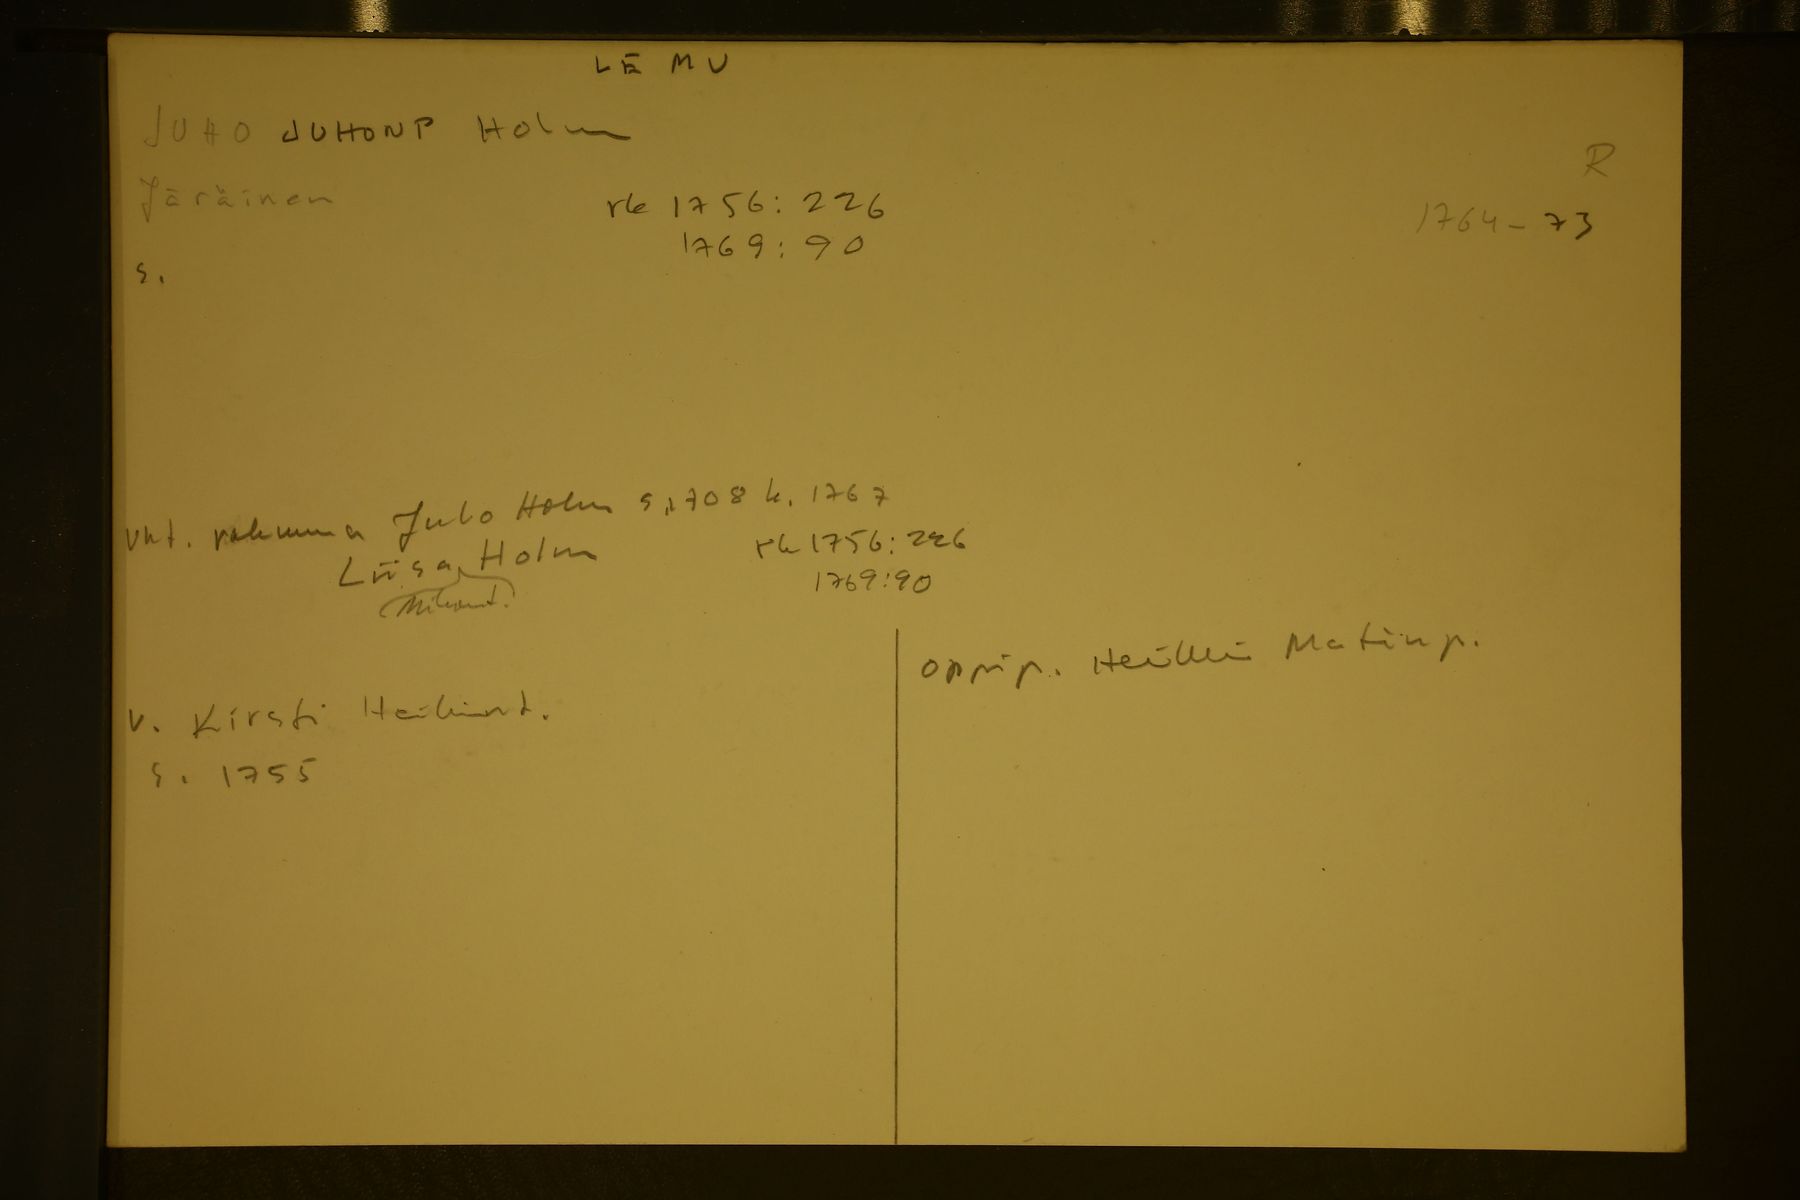 LEMU
JUHO JUHONP Holm
R
Järäinen
rk 1756: 226
1764-73
1769: 90
s.
vht. Juho Holm s. 1708 k. 1767
Liisa Holm
rk 1756: 226
1769:90
oppip. Heikki Matinp.
v. Kirsti Heikint.
s. 1755